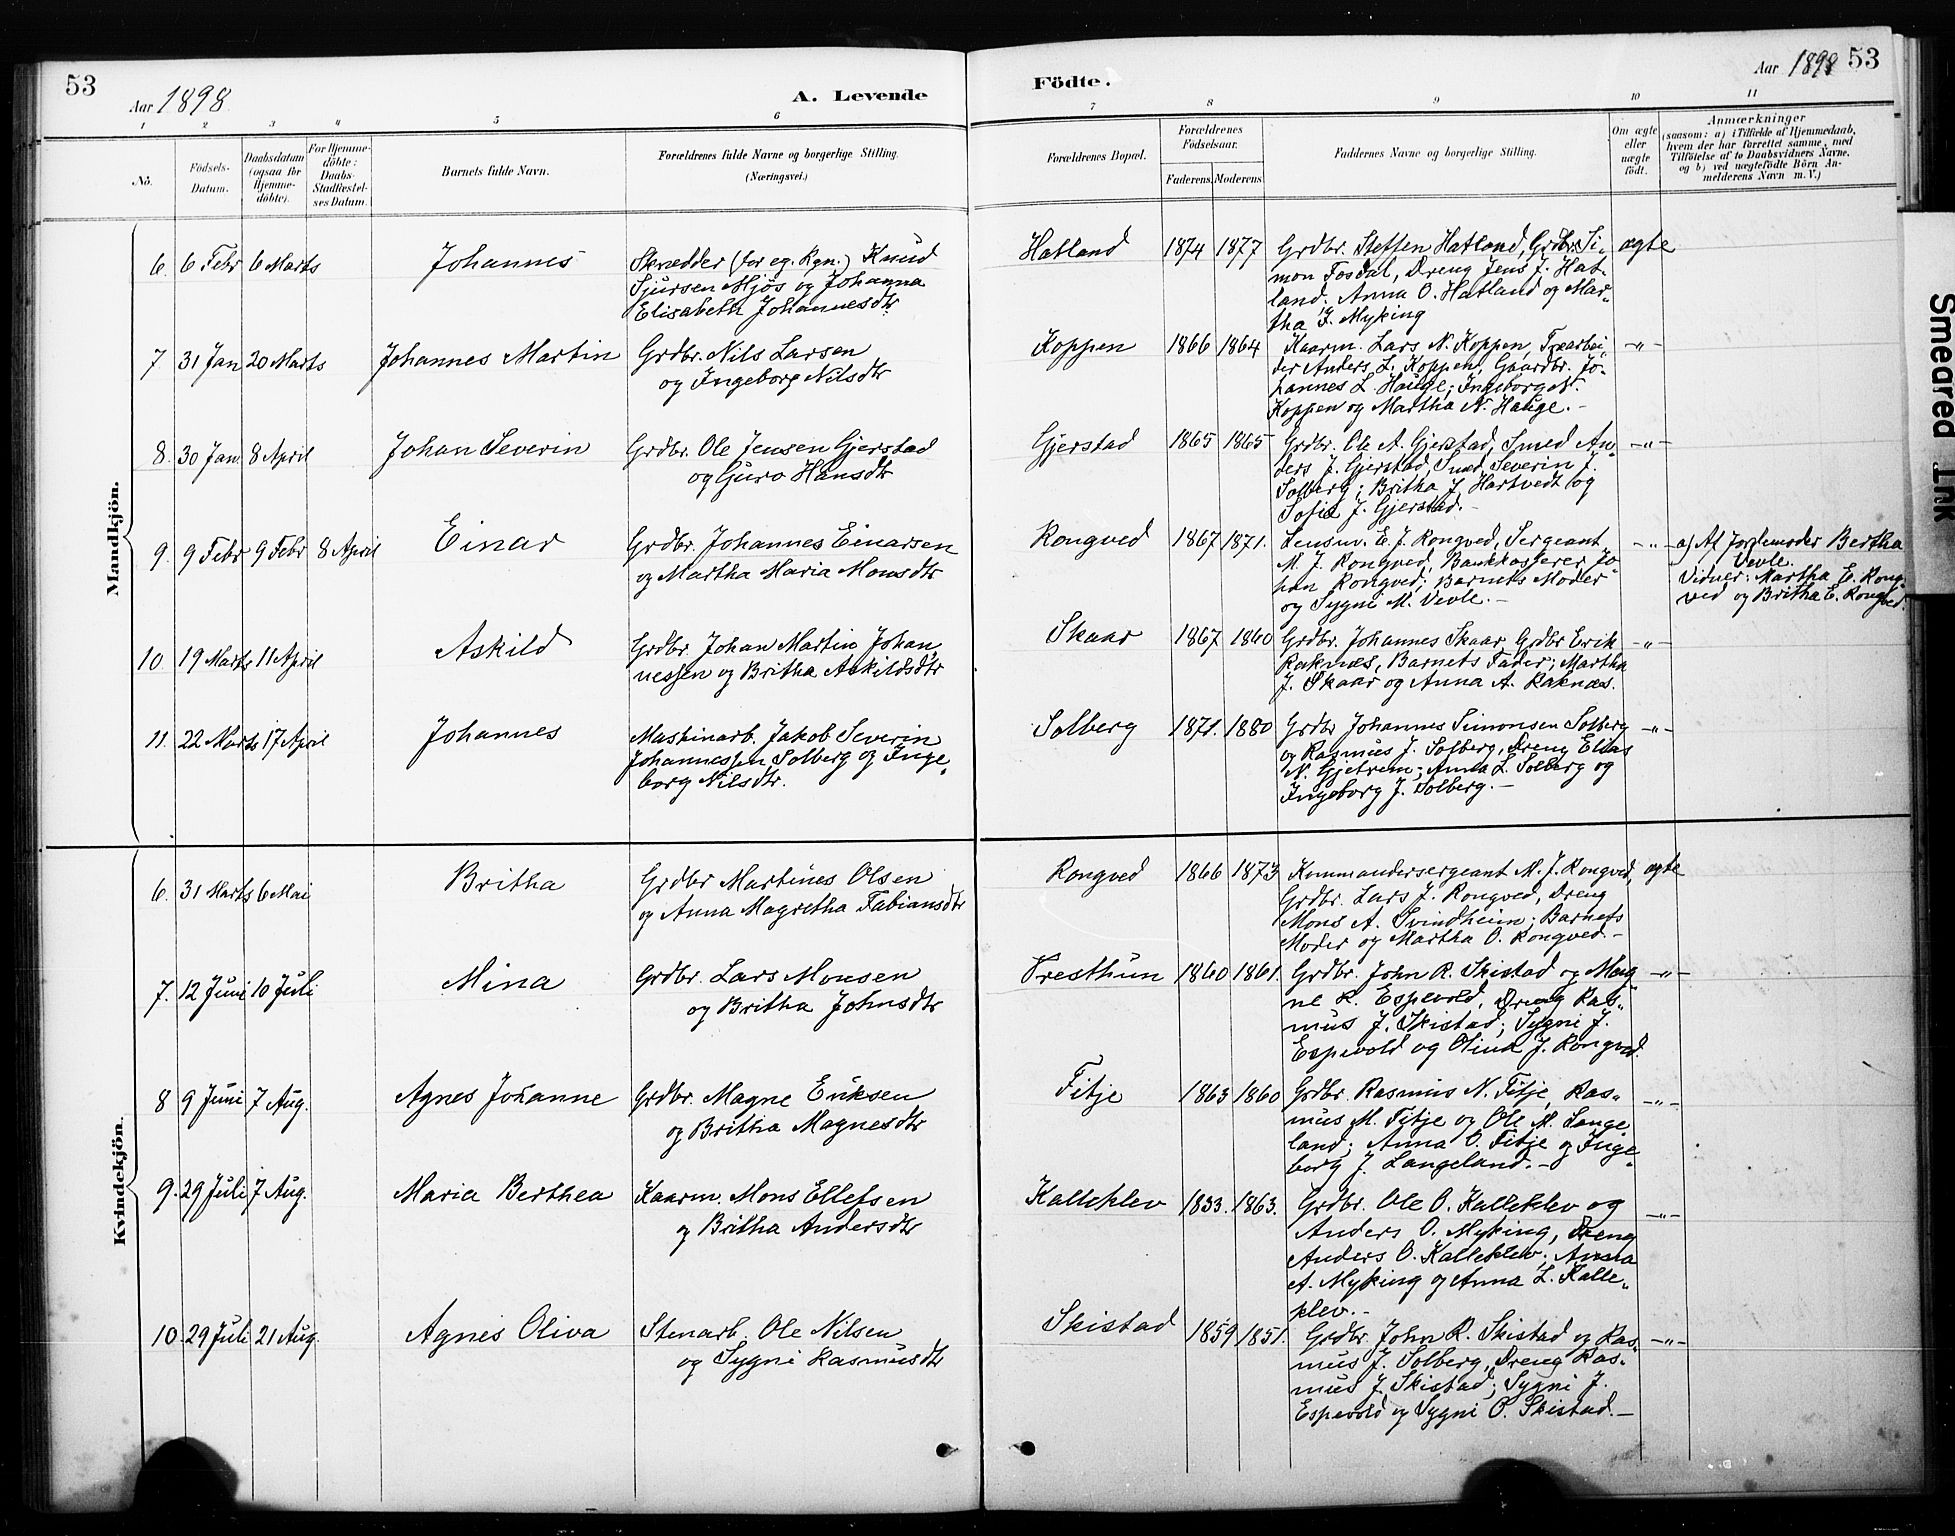 53
Aar 1898.
A. Levende
Födte.
Aar 1898
53
1 2 3 4 5 6 7 8 9 10 11
No.
Födsels-Datum.
Daabsdatum (ogsaa for Hjemme-döbte).
For Hjemme-döbte: Daabs-Stadfæstel-ses Datum.
Barnets fulde Navn.
Forældrenes fulde Navne og borgerlige Stilling. (Næringsvei.)
Forældrenes Bopæl.
Forældrenes Födselsaar.
Faderens. Moderens.
Faddernes Navne og borgerlige Stilling.
Om ægte eller uægte födt.
Anmærkninger
(saasom: a) i Tilfælde af Hjemmedaab,
hvem der har forrettet samme, med
Tilföielse af to Daabsvidners Navne,
og b) ved uægtefödte Börn An-
melderens Navn m. V.)
Mandkjön.
6. 6 Febr 6 Marts Johannes
Skrædder (for eg. Rgn.) Knud
Sjursen Mjös og Johanna
Elisabeth Johannesdtr.
Hatland 1874 1877
Grdbr. Steffen Hatland, Grdbr. Si-
mon Fosdal, Dreng Jens J. Hat-
land. Anna O. Hatland og Mar-
tha J. Myking
ægte
7 31 Jan 20 Marts Johannes Martin
Grdbr. Nils Larsen
og Ingeborg Nilsdtr
Koppen 1866 1864
Kaarm. Lars N. Koppen, Træarbei-
der Anders L. Koppen, Gaardbr. Jo-
hannes L. Hauge; Ingeborg
Koppen og Martha N. Hauge. -
-"-
8. 30 Jan. 8 April Johan Severin
Grdbr. Ole Jensen Gjerstad
og Guro Hansdtr
Gjerstad 1865 1865
Grdbr. Ole A. Gjerstad, Smed An-
ders J. Gjerstad, Smed Severin J.
Solberg; Britha J. Hartvedt og
Sofie J. Gjerstad. -
-"-
9. 9 Febr 9 Febr 8 April Einar
Grdbr. Johannes Einarsen
og Martha Maria Monsdtr
Rongved 1867 1871.
Lensm. E. J. Rongved, Sergeant
M. J. Rongved, Bankkasserer Jo-
han Rongved; Barnets Moder
og Sygni M. Vevle. -
-"-
a) Af Jordemoder Bertha
Vevle.
Vidner: Martha E. Rong-
ved og Britha E. Rongved.
10. 19 Marts 11 April Askild
Grdbr. Johan Martin Johan-
nessen og Britha Askildsdtr
Skaar 1867 1860
Grdbr. Johannes Skaar, Grdbr Erik
Raknes, Barnets Fader; Martha
J. Skaar og Anna A. Raknæs.
-"-
11. 22 Marts 17 April Johannes
Maskinarb. Jakob Severin
Johannessen Solberg og Inge-
borg Nilsdtr.
Solberg 1871. 1880
Grdbr Johannes Simonsen Solberg
og Rasmus J. Solberg, Dreng Elias
N. Gjetrem; Anna L. Solberg og
Ingeborg J. Solberg. -
-"-
Kvindekjön.
6. 31 Marts 6 Mai Britha
Grdbr Martines Olsen
og Anna Magretha Fabiansdtr
Rongved 1866 1873
Kommandersergeant M. J. Rongved,
Grdbr. Lars J. Rongved, Dreng
Mons A. Svindheim; Barnets
Moder og Martha O. Rongved. -
ægte
7. 12 Juni 10 Juli Mina
Grdbr. Lars Monsen
og Britha Johnsdtr
Vresthun 1860 1861.
Grdbr. John R. Skistad og Mag-
ne R. Espevold, Dreng Ras-
mus J. Skistad; Sygni J.
Espevold og Olina J. Rongved.
-"-
8 9 Juni 7 Aug. Agnes Johanne
Grdbr. Magne Eriksen
og Britha Magnesdtr
Fitje 1863 1860
Grdbr. Rasmus N. Fitje, Ras-
mus M. Fitje og Ole M. Lange-
land; Anna O. Fitje og Inge-
borg J. Langeland. -
-"-
9. 29 Juli 7 Aug. Maria Berthea
Kaarm. Mons Ellefsen
og Britha Andersdtr
Kalleklev 1833. 1863.
Grdbr. Ole O. Kalleklev og
Anders O. Myking, Dreng
Anders O. Kalleklev; Anna
A. Myking og Anna L. Kalle-
klev. -
-"-
10. 29 Juli 21 Aug. Agnes Oliva
Stenarb. Ole Nilsen
og Sygni Rasmusdtr
Skistad 1859 1851.
Grdbr. John R. Skistad og Ras-
mus J. Solberg, Dreng Ras-
mus J. Skistad; Sygni J.
Espevold og Sygni O. Skistad. -
-"-
Smeared Ink